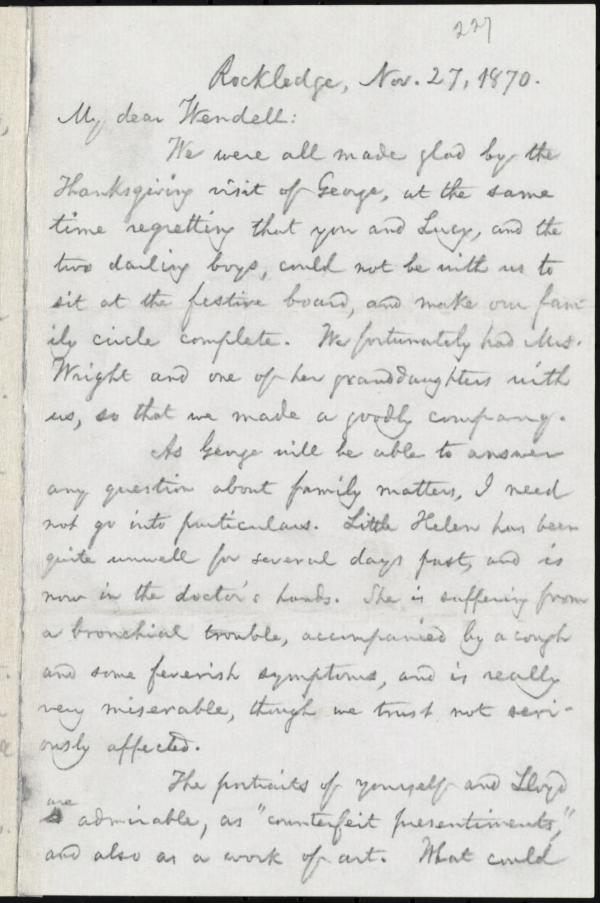 227
Rockledge, Nov. 27, 1870.
My dear Wendell:
We were all made glad by the
Thanksgiving visit of George, at the same
time regretting that you and Lucy, and the
two darling boys, could not be with us to
sit at the festive board, and make our fam-
ily circle complete. We fortunately had Mrs.
Wright and one of her granddaughters with
us, so that we made a goodly company.
As George will be able to answer
any question about family matters, I need
not go into particulars. Little Helen has been
quite unwell for several days past, and is
now in the doctor's hands. She is suffering from
a bronchial trouble, accompanied by a cough
and some feverish symptoms, and is really
very miserable, though we trust not seri-
ously affected.
The portraits of yourself and Lloyd
are
admirable, as "counterfeit presentiments,"
and also as a work of art. What could